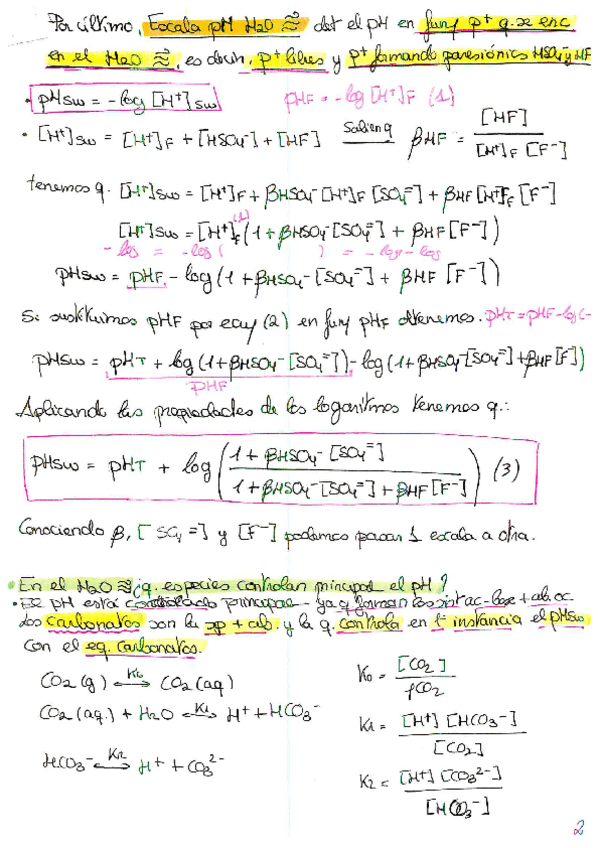 Por último, Escala pH H2O ≈ det el pH en funç p+ q. se enc
en el H2O ≈, es decir, p+ libres y p+ formando pares iónicos HSO4- y HF
• pHsw = -log [H+]sw    pHF = -log [H+]F (1)
• [H+]sw = [H+]F + [HSO4-] + [HF]  Sabien q  βHF = [HF] / [H+]F [F-]
tenemos q. [H+]sw = [H+]F + βHSO4- [H+]F [SO4=] + βHF [H+]F [F-]
[H+]sw = [H+]F (1 + βHSO4- [SO4=] + βHF [F-])
(1)
-log = -log ( ) = -log -log
pHsw = pHF - log (1 + βHSO4- [SO4=] + βHF [F-])
Si sustituimos pHF por ecuç (2) en funç pHF obtenemos. pHT = pHF - log (-
pHsw = pHT + log (1 + βHSO4- [SO4=]) - log (1 + βHSO4- [SO4=] + βHF [F-])
pHF
Aplicando las propiedades de los logaritmos tenemos q.:
pHsw = pHT + log ( 1 + βHSO4- [SO4=] / 1 + βHSO4- [SO4=] + βHF [F-] ) (3)
Conociendo β, [SO4=] y [F-] podemos pasar 1 escala a otra.
• En el H2O ≈ ¿q. especies controlan principal el pH?
• El pH está controlado principal- ya q forman los sist ac-base + ab. ac
Los carbonatos son la sp + ab. y la q. controla en 1ª instancia el pHsw
con el eq. carbonatos.
CO2 (g) ⟷ K0 CO2 (aq)    K0 = [CO2] / pCO2
CO2 (aq.) + H2O ⟷ K1 H+ + HCO3-    K1 = [H+] [HCO3-] / [CO2]
HCO3- ⟷ K2 H+ + CO3 2-    K2 = [H+] [CO3 2-] / [HCO3-]
2